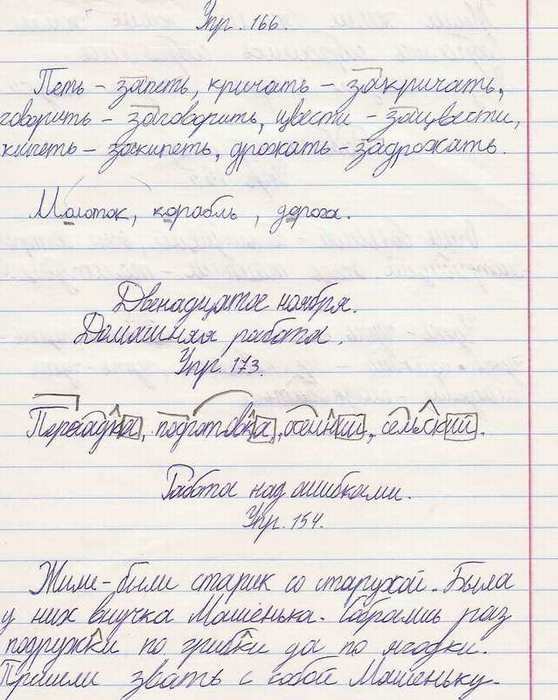 Упр. 166.
Петь – запеть, кричать – закричать,
говорить – заговорить, цвести – зацвести,
кипеть – закипеть, дрожать – задрожать.
Молоток, корабль, дорога.
Двенадцатое ноября.
Домашняя работа.
Упр. 173.
Пересадка, подготовка, осенний, сельский.
Работа над ошибками.
Упр. 154.
Жили-были старик со старухой. Была
у них внучка Машенька. Собрались раз
подружки по грибки да по ягодки.
Пришли звать с собой Машеньку.